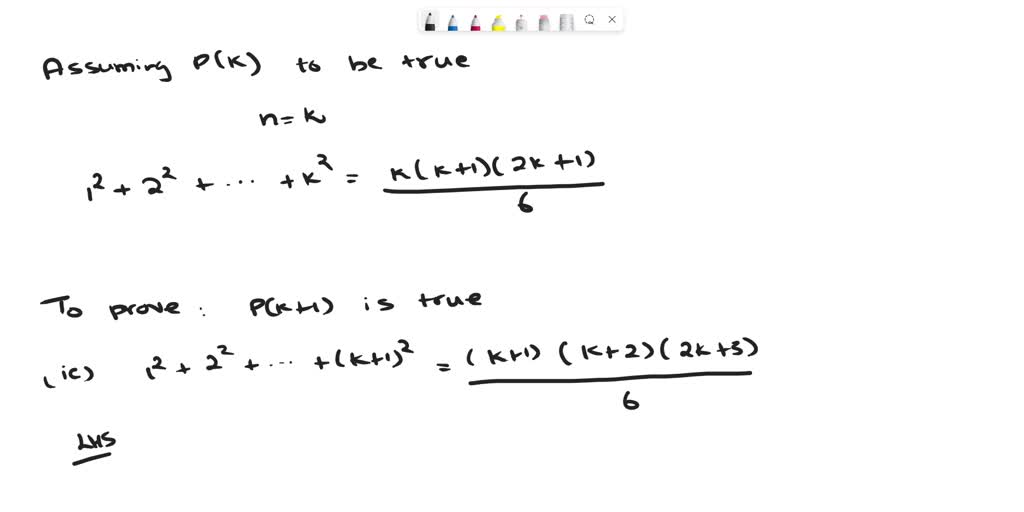 Assuming P(K) to be true
n=k
1² + 2² + ... + k² = k(k+1)(2k+1)/6
To prove: P(k+1) is true
(ie) 1² + 2² + ... + (k+1)² = (k+1)(k+2)(2k+3)/6
LHS